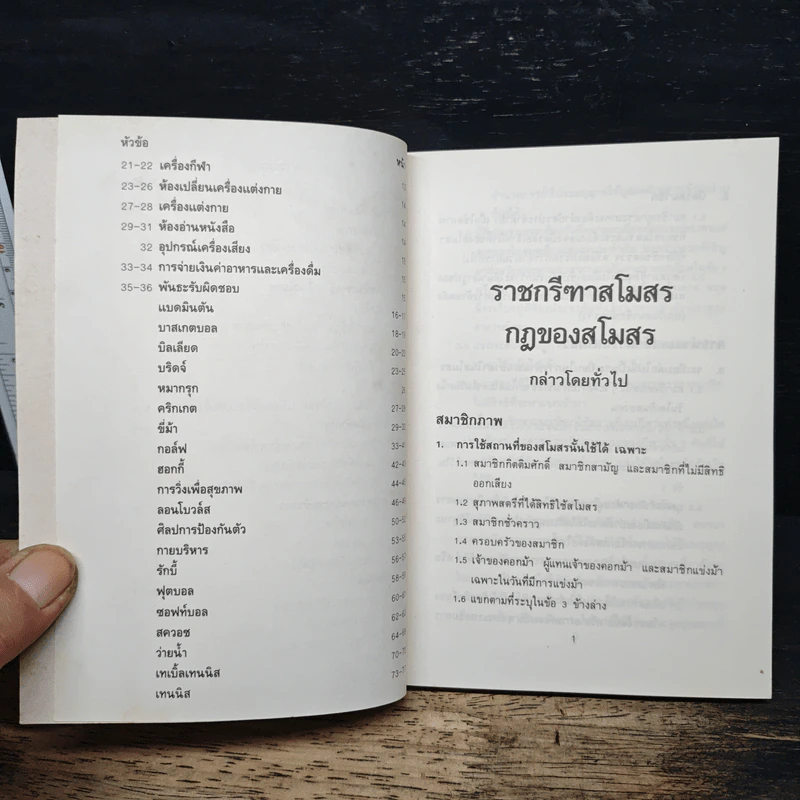 หัวข้อ
21-22 เครื่องกีฬา
23-26 ห้องเปลี่ยนเครื่องแต่งกาย
27-28 เครื่องแต่งกาย
29-31 ห้องอ่านหนังสือ
32 อุปกรณ์เครื่องเสียง
33-34 การจ่ายเงินค่าอาหารและเครื่องดื่ม
35-36 พันธะรับผิดชอบ
แบดมินตัน 16-1
บาสเกตบอล 18-1
บิลเลียด 20-2
บริดจ์ 23-2
หมากรุก
คริกเกต 27-2
ขี่ม้า 29-3
กอล์ฟ 33-4
ฮอกกี้ 42-4
การวิ่งเพื่อสุขภาพ 44-4
ลอนโบวล์ส 46-4
ศิลปการป้องกันตัว 50-5
กายบริหาร 53-5
รักบี้ 56-5
ฟุตบอล 58-
ซอฟท์บอล 60-6
สควอช 62-6
ว่ายน้ำ 64-6
เทเบิ้ลเทนนิส 70-7
เทนนิส 73-7
ราชกรีฑาสโมสร
กฎของสโมสร
กล่าวโดยทั่วไป
สมาชิกภาพ
1. การใช้สถานที่ของสโมสรนั้นใช้ได้ เฉพาะ
1.1 สมาชิกกิตติมศักดิ์ สมาชิกสามัญ และสมาชิกที่ไม่มีสิทธิ
ออกเสียง
1.2 สุภาพสตรีที่ได้สิทธิใช้สโมสร
1.3 สมาชิกชั่วคราว
1.4 ครอบครัวของสมาชิก
1.5 เจ้าของคอกม้า ผู้แทนเจ้าของคอกม้า และสมาชิกแข่งม้า
เฉพาะในวันที่มีการแข่งม้า
1.6 แขกตามที่ระบุในข้อ 3 ข้างล่าง
1